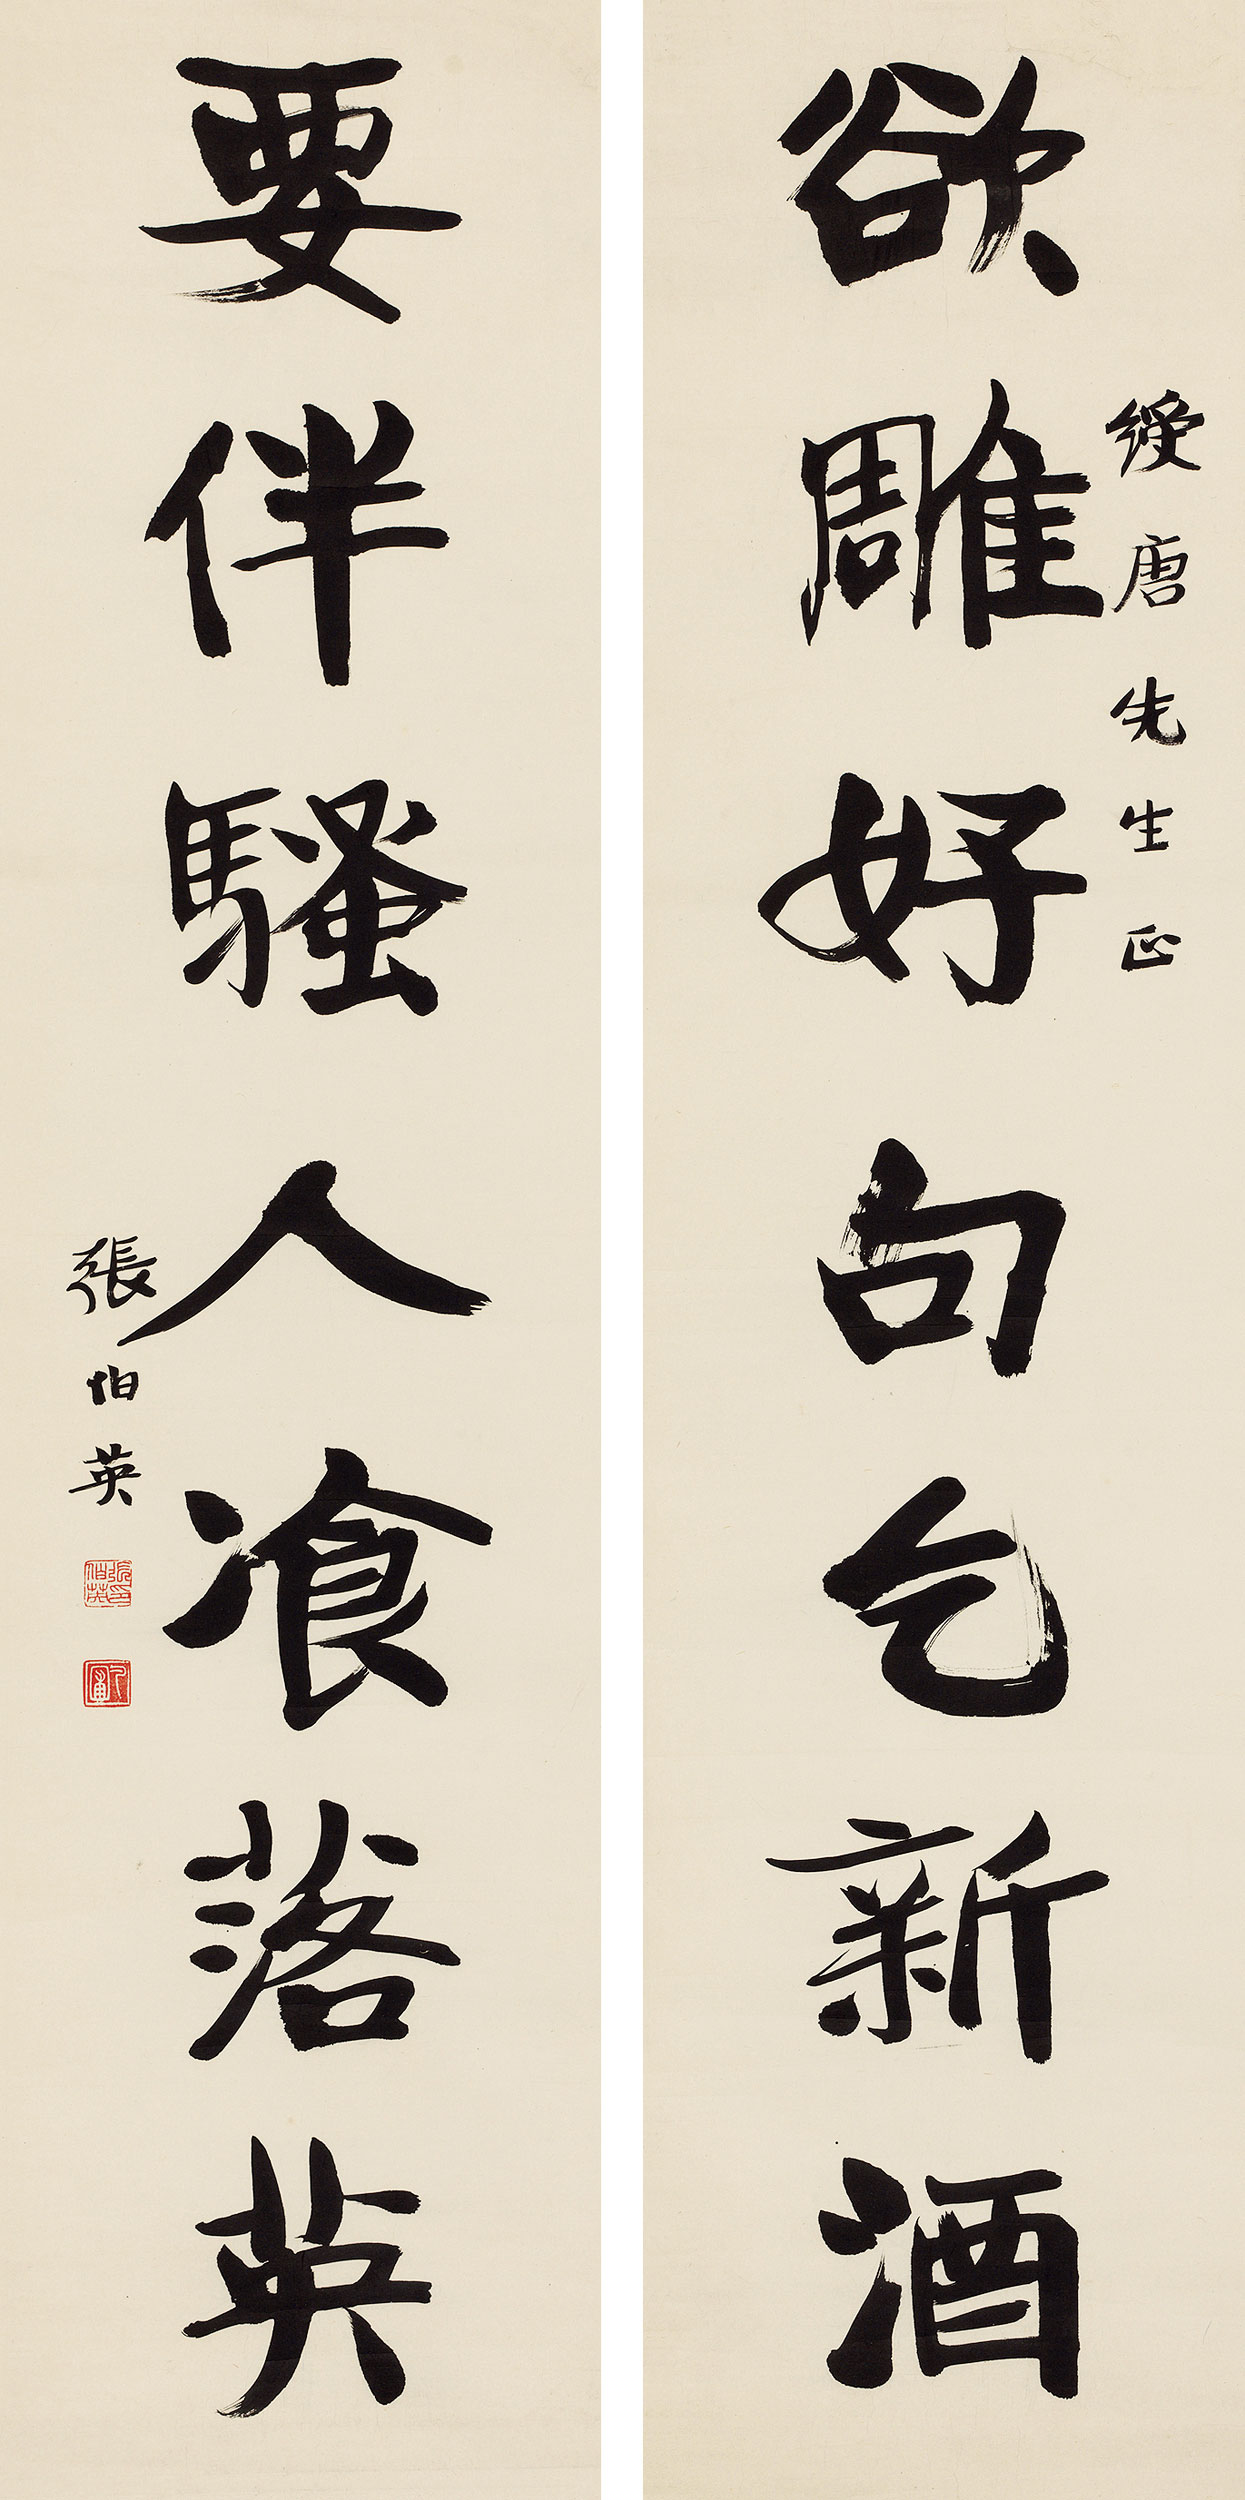 欲雕好句乞新酒
綬唐先生正
要伴騷人飡落英
張伯英